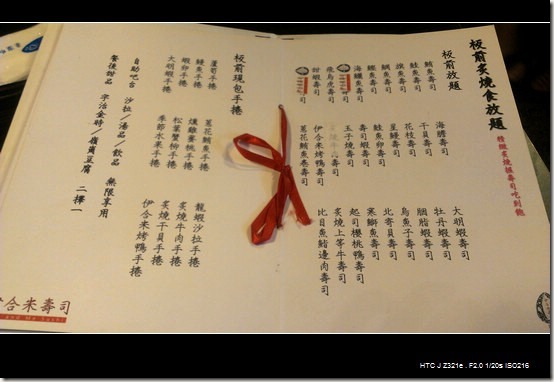 板前炙燒食放題
板前放題
鮪魚壽司
鮭魚壽司
旗魚壽司
鯛魚壽司
鰹魚壽司
海鱺魚壽司
飛烏虎壽司
甜蝦壽司
海膽壽司
干貝壽司
花枝壽司
星鰻壽司
鮭魚卵壽司
壽司蝦壽司
玉子燒壽司
伊合米烤鴨壽司
蔥花鮪魚卷壽司
大明蝦壽司
牡丹蝦壽司
胭脂蝦壽司
烏魚子壽司
北寄貝壽司
寒鰤魚壽司
起司櫻桃鴨壽司
炙燒上等牛壽司
比目魚鰭邊肉壽司
板前現包手捲
蘆筍手捲
鰻魚手捲
蝦卵手捲
大明蝦手捲
蔥花鮪魚手捲
燻雞蜜桃手捲
松葉蟹柳手捲
季節水果手捲
龍蝦沙拉手捲
炙燒牛肉手捲
炙燒干貝手捲
伊合米烤鴨手捲
自助吧台 沙拉/湯品/飲品 無限享用
餐後甜品 宇治金時/嶺岡豆腐 二擇一
合米壽司
HTC J Z321e . F2.0 1/20s ISO216